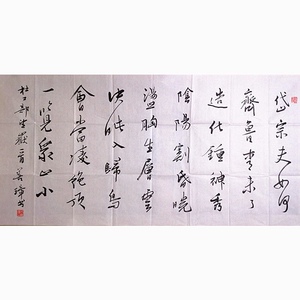 岱宗夫如何
齊魯青未了
造化鍾神秀
陰陽割昏曉
盪胸生層雲
決眥入歸鳥
會當凌絶頂
一覽衆山小
杜工部望嶽一首 書